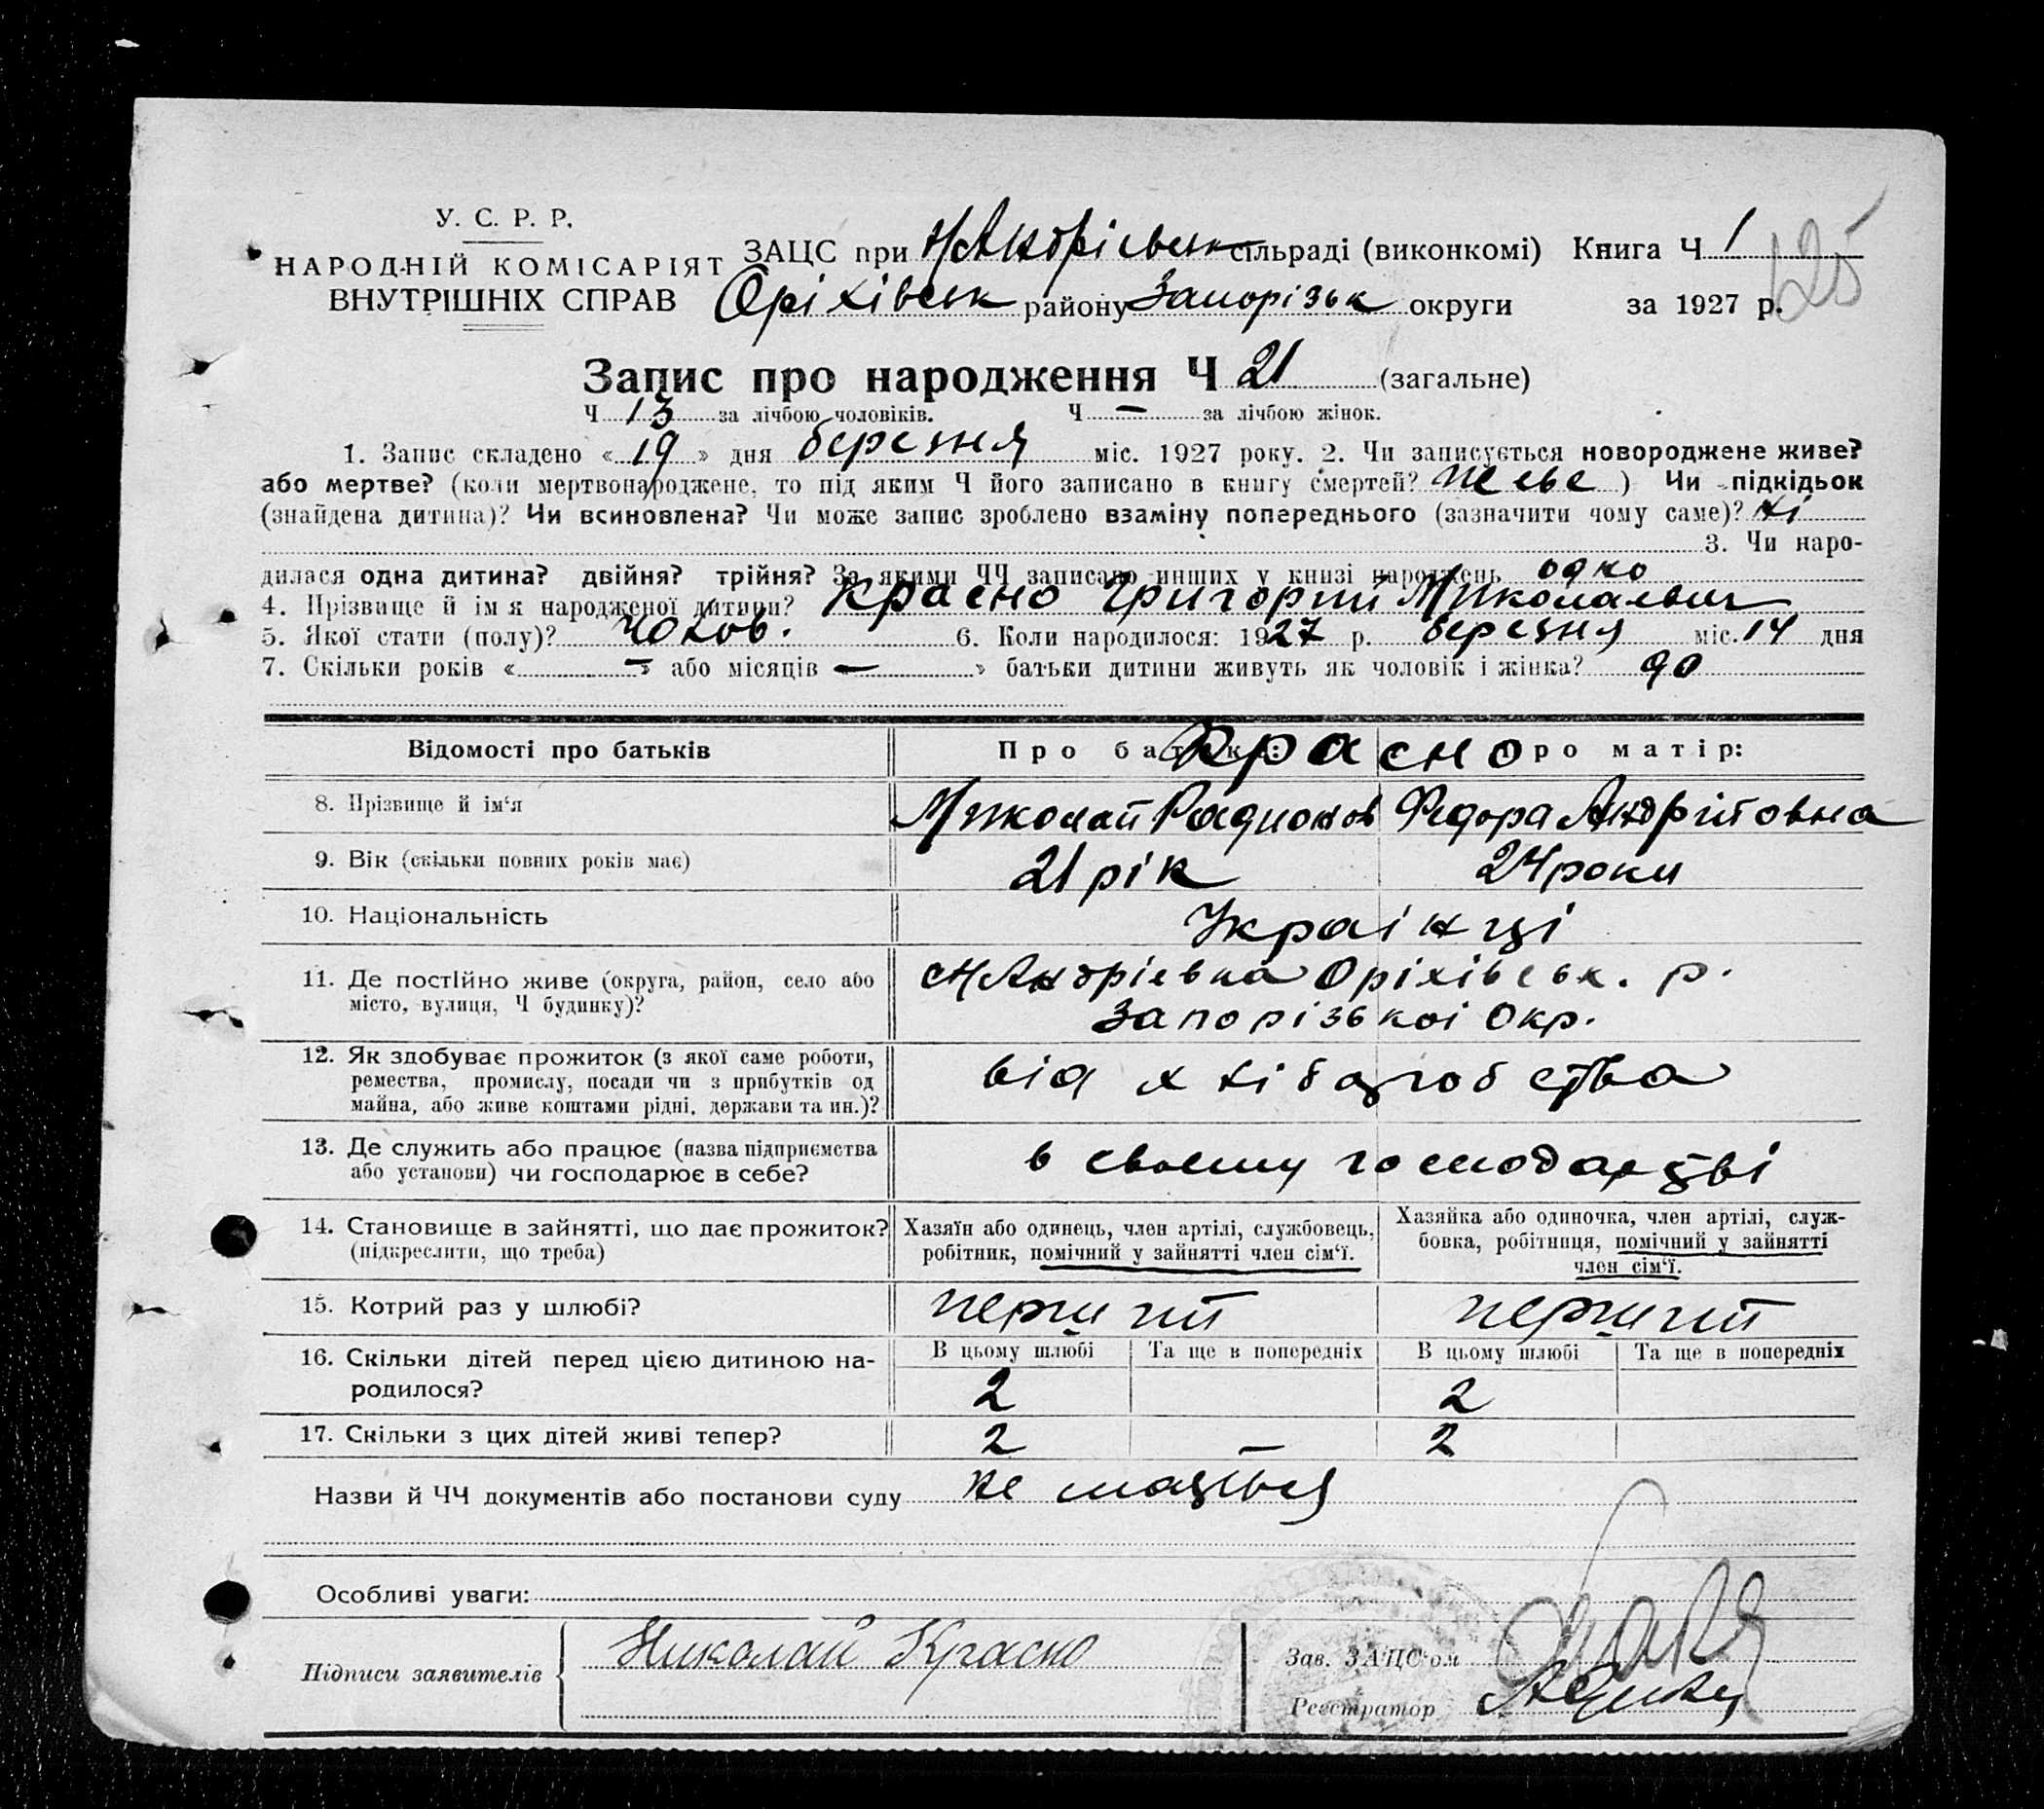 У. С. Р. Р.
НАРОДНІЙ КОМІСАРІЯТ
ВНУТРІШНІХ СПРАВ
ЗАЦС при Н/Андрієвськ сільраді (виконкомі) Книга Ч 1
125
Оріхівськ району Запорізьк округи за 1927 р.
Запис про народження Ч 21 (загальне)
Ч 13 за лічбою чоловіків. Ч — за лічбою жінок.
1. Запис складено « 19 » дня березня міс. 1927 року. 2. Чи записується новороджене живе?
або мертве? (коли мертвонароджене, то під яким Ч його записано в книгу смертей? живе ) Чи підкідьок
(знайдена дитина)? Чи всиновлена? Чи може запис зроблено взаміну попереднього (зазначити чому саме)? ні
3. Чи наро-
дилася одна дитина? двійня? трійня? За якими ЧЧ записано инших у книзі народжень одно
4. Прізвище й імя народженої дитини? Красно Григорий Миколаевич
5. Якої стати (полу)? чолов. 6. Коли народилося: 1927 р. березня міс. 14 дня
7. Скільки років « — » або місяців « — » батьки дитини живуть як чоловік і жінка?
Відомості про батьків Про батька: Про матір:
Красно
8. Прізвище й ім‘я Миколай Радионов Федора Андрійовна
9. Вік (скільки повних років має) 21 рік 24 роки
10. Національність Українці
11. Де постійно живе (округа, район, село або
місто, вулиця, Ч будинку)?
Н/Андрієвка Оріхівськ. р.
Запорізькоі Окр.
12. Як здобуває прожиток (з якої саме роботи,
ремества, промислу, посади чи з прибутків од
майна, або живе коштами рідні, держави та ин.)?
від хлібаробства
13. Де служить або працює (назва підприємства
або установи) чи господарює в себе?
в своему господарстві
14. Становище в зайнятті, що дає прожиток?
(підкреслити, що треба)
Хазяїн або одинець, член артілі, службовець,
робітник, помічний у зайнятті член сім‘ї.
Хазяйка або одиночка, член артілі, служ-
бовка, робітниця, помічний у зайнятті
член сім‘ї.
15. Котрий раз у шлюбі? перший перший
16. Скільки дітей перед цією дитиною на-
родилося?
В цьому шлюбі Та ще в попередніх В цьому шлюбі Та ще в попередніх
2 2
17. Скільки з цих дітей живі тепер? 2 — 2
Назви й ЧЧ документів або постанови суду не
Особливі уваги:
Підписи заявителів Николай Красно
Зав. ЗАЦС‘ом
Реєстратор